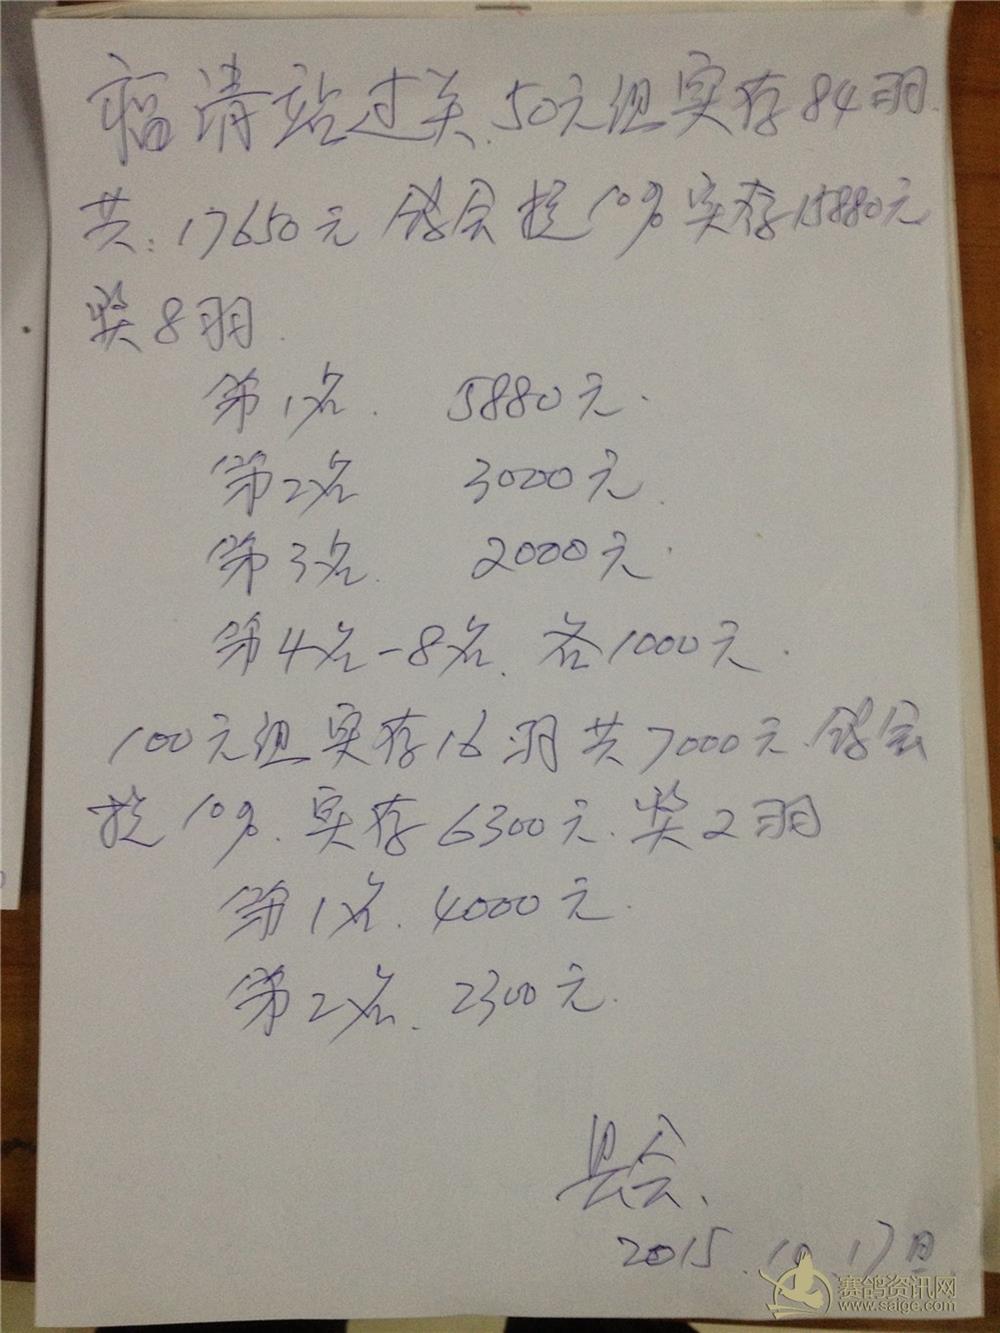 福清站过关.50元组实存84羽.
共:17650元 鸽会提10% 实存15880元
奖8羽.
第1名. 5880元.
第2名 3000元.
第3名. 2000元.
第4名-8名. 各1000元.
100元组实存16羽共7000元.鸽会
提10%.实存6300元.奖2羽
第1名.4000元.
第2名.2300元.
县会.
2015.10.17日
赛鸽资讯网
www.saige.com